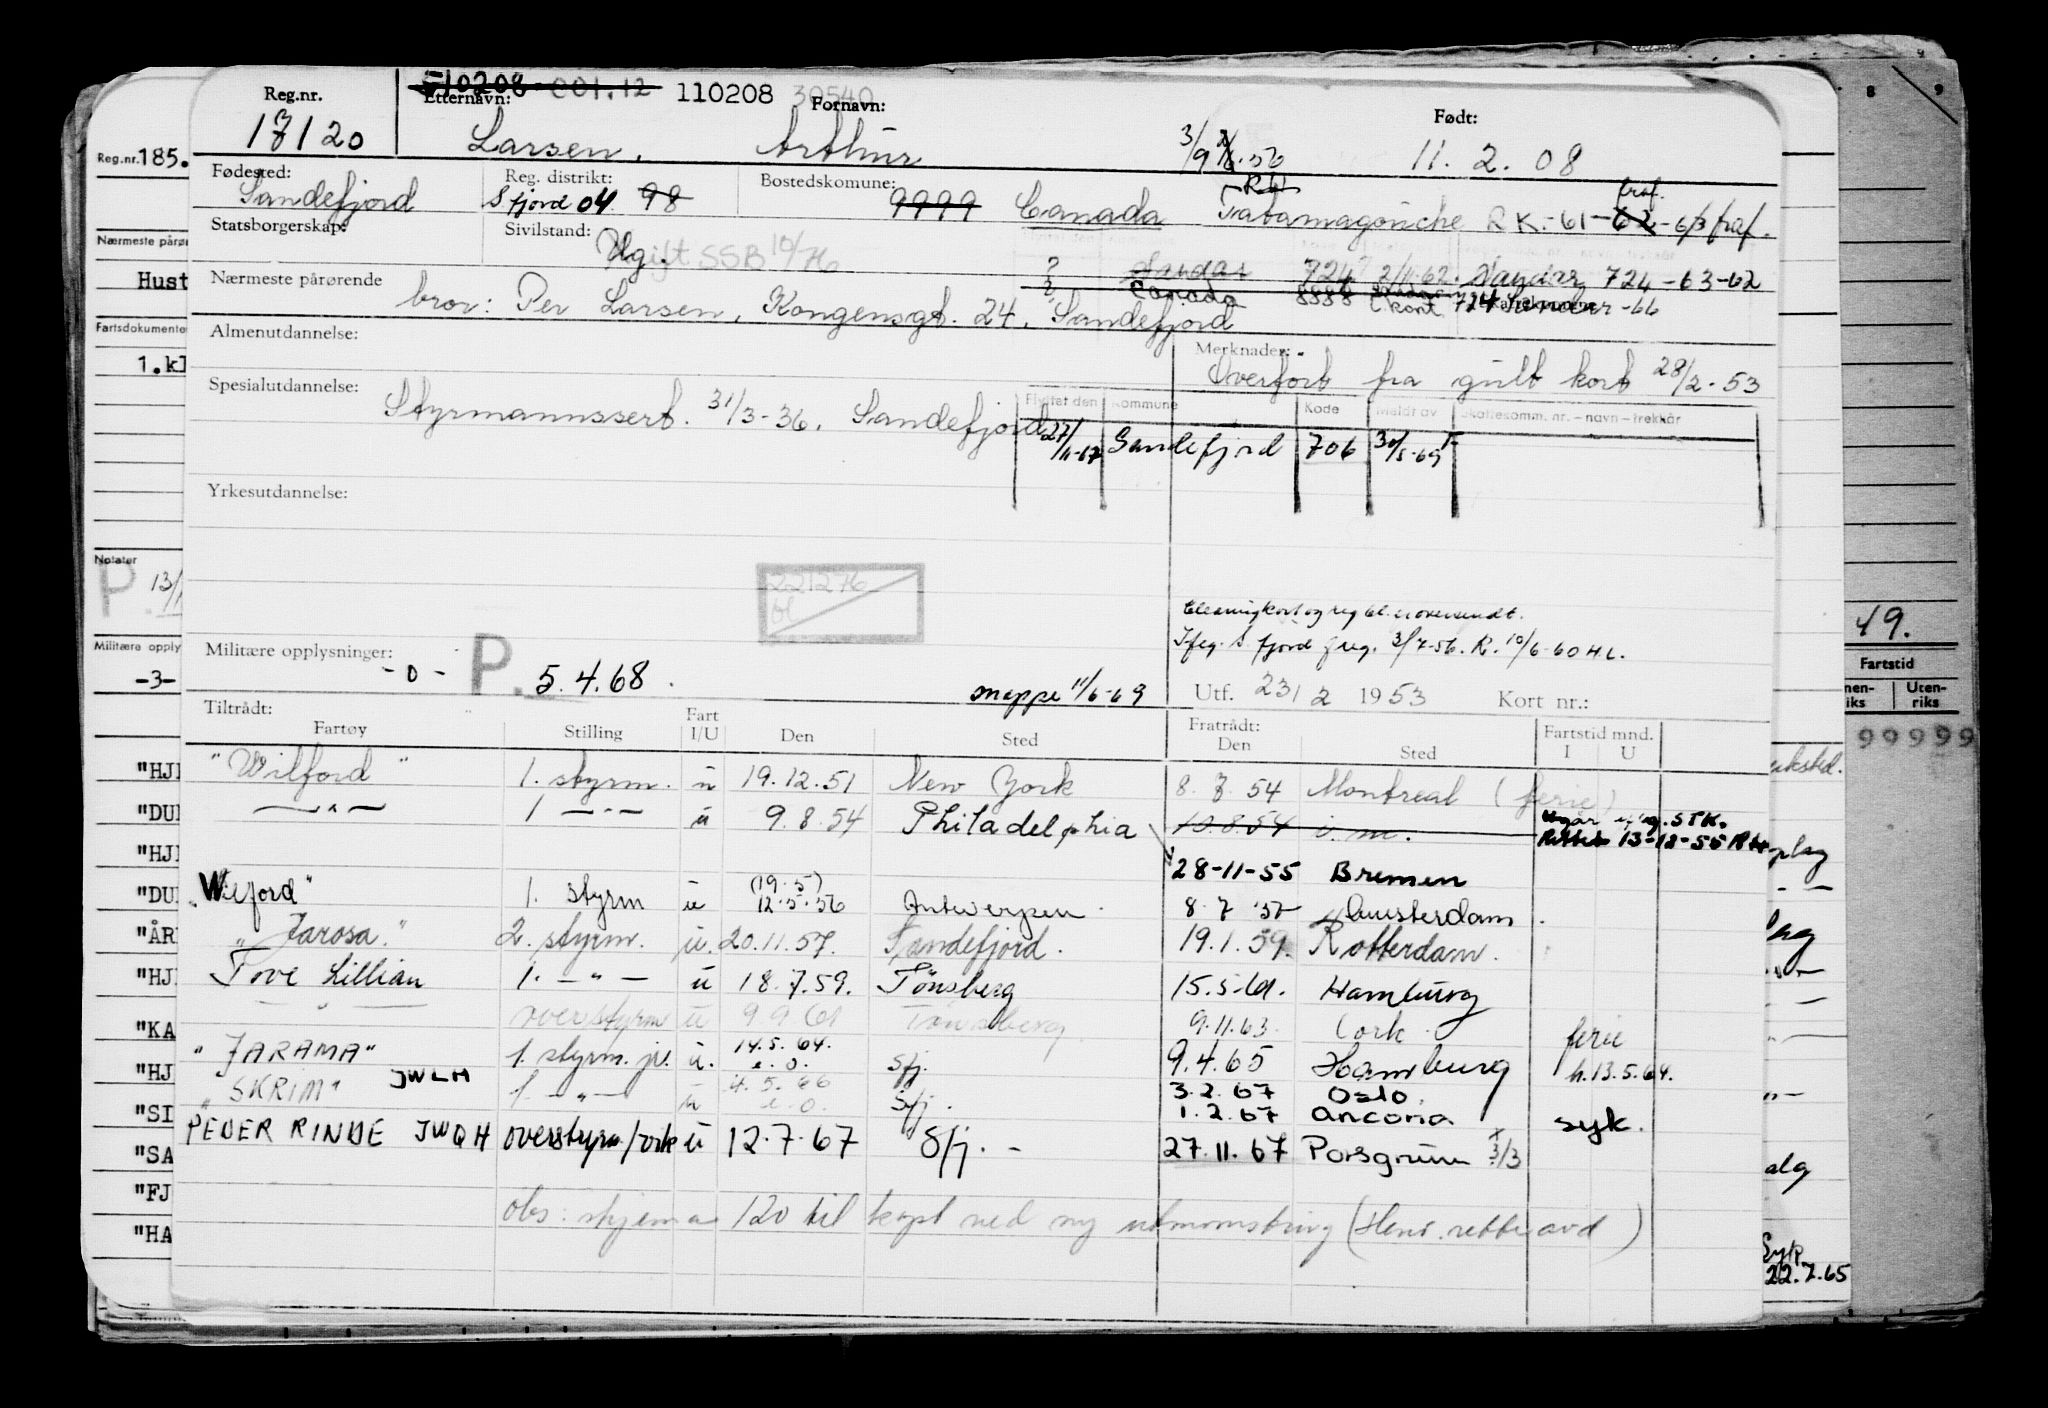 Reg.nr. 17120
510208 001.12 110208 30540
Etternavn: Larsen, Fornavn: Arthur Født: 11. 2. 08
Fødested: Sandefjord Reg. distrikt: S fjord 04 98 Bostedskomune: 9999 Canada Tatamagouche RK.-61-62-6/3 fraf.
Statsborgerskap: Sivilstand: Ugift SSB 10/76
Sandar 724 2/11-62. Sandar 724-63-62
Canada 8888
Nærmeste pårørende bror: Per Larsen, Kongensgt. 24, Sandefjord
Almenutdannelse:
Merknader: Overført fra gult kort 28/2-53
Spesialutdannelse: Styrmannssert. 31/3-36. Sandefjord
Flyttet den Kommune Kode Meldt av Skattekomm. nr. – navn – trekkår
27/11-67 Sandefjord 706
Yrkesutdannelse:
221276
Militære opplysninger: -0- P. 5.4.68.
mappe 11/6-69
Utf. 23/2 1953 Kort nr.:
Tiltrådt: Fartøy Stilling Fart I/U Den Sted Fratrådt: Den Sted Fartstid mnd. I U
"Wilford" 1. styrm. u 19.12.51 New York 8. 7. 54 Montreal (ferie)
— " — 1 — " — u 9.8.54 Philadelphia 10.8.54 i.m.
28-11-55 Bremen
"Wilford" 1. styrm u (19.5) 12.5.56 Antwerpen 8. 7 57 Amsterdam
"Jarosa." 2. styrm. u. 20.11.57. Sandefjord. 19.1.59. Rotterdam.
Tove Lillian 1. — " — u 18.7.59. Tönsberg 15.5.61. Hamburg
— " — overstyrm u 9 9 61 Tønsberg 9.11.63. Cork ferie
"JARAMA" 1. styrm. jr. u. 14.5.64. e.o. Sfj. 9.4.65 Hamburg h.13.5.64.
"SKRIM" JWLM 1. — " — u 4.5.66 e.o. Sfj. 3.2.67 Oslo.
1.2.67 Ancona syk.
PEDER RINDE JWQH overstyrm/ u 12.7.67 Sfj. – 27.11.67 Porsgrunn
obs: skjema 120 til
Reg.nr. 185.
Nærmeste pårø
Hust
Fartsdokumenter
1.kl
Notater
P. 13/
Militære opply
-3-
"HJE
"DU
"HJ
"DU
"ÅR
"HJ
"KA
"HJ
"SI
"SA
"FJ
"HA
8 9
49.
Fartstid
Uten-
riks
99999
Syk
22.7.65